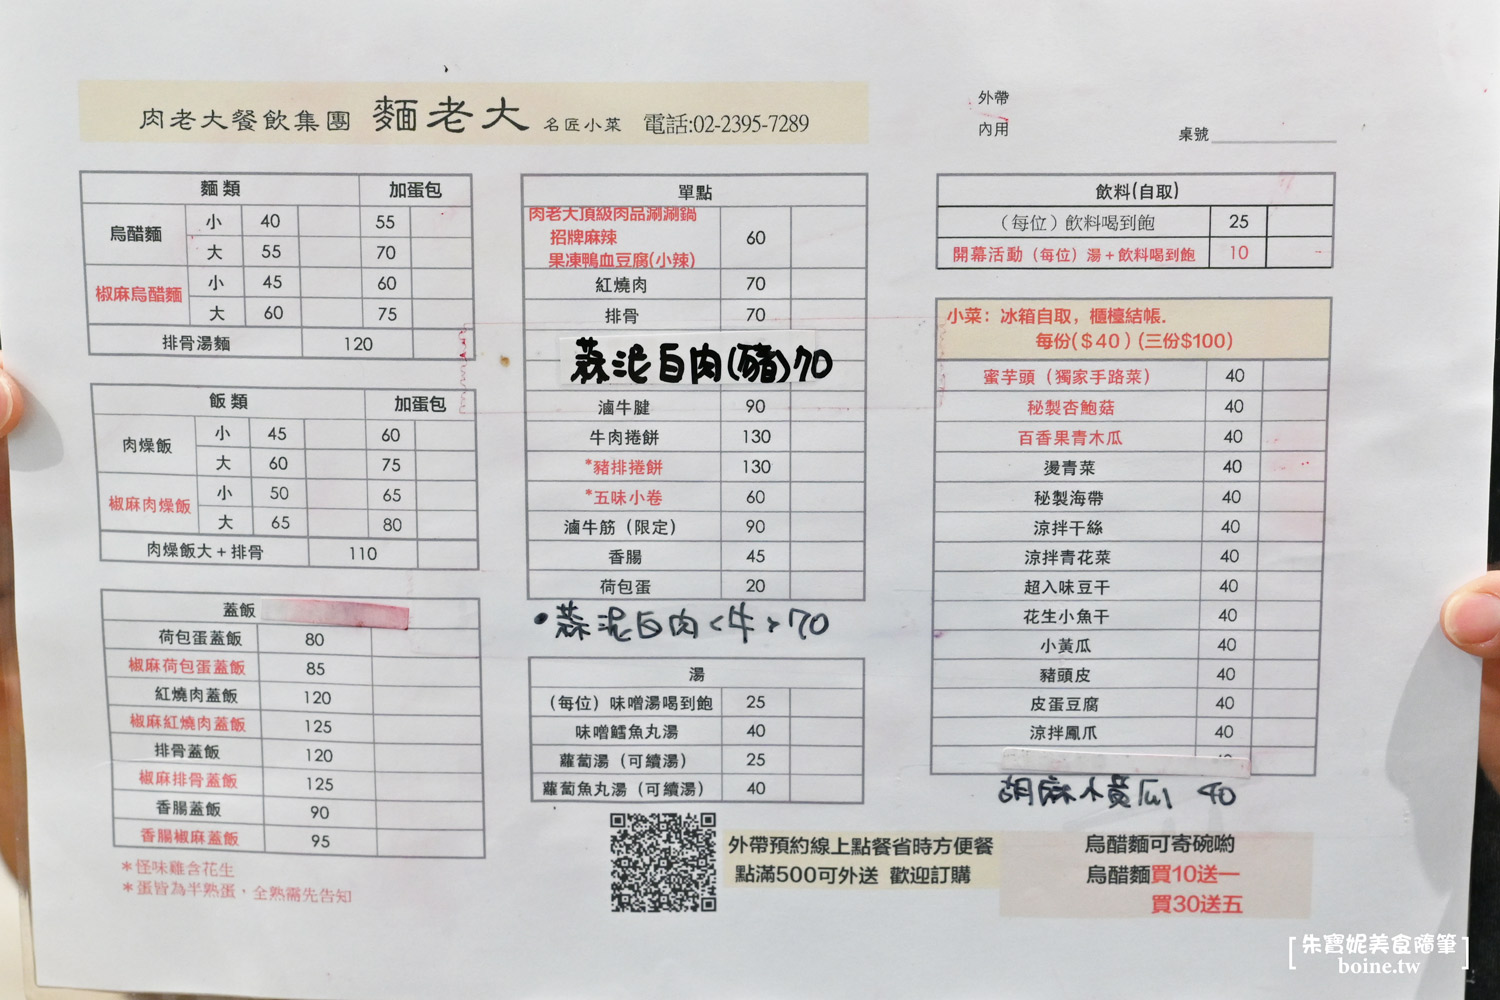 肉老大餐飲集團 麵老大 名匠小菜 電話:02-2395-7289
外帶
內用
桌號
麵類 加蛋包
烏醋麵 小 40 55
大 55 70
椒麻烏醋麵 小 45 60
大 60 75
排骨湯麵 120
飯類 加蛋包
肉燥飯 小 45 60
大 60 75
椒麻肉燥飯 小 50 65
大 65 80
肉燥飯大+排骨 110
蓋飯
荷包蛋蓋飯 80
椒麻荷包蛋蓋飯 85
紅燒肉蓋飯 120
椒麻紅燒肉蓋飯 125
排骨蓋飯 120
椒麻排骨蓋飯 125
香腸蓋飯 90
香腸椒麻蓋飯 95
*怪味雞含花生
*蛋皆為半熟蛋，全熟需先告知
單點
肉老大頂級肉品涮涮鍋
招牌麻辣
果凍鴨血豆腐(小辣) 60
紅燒肉 70
排骨 70
蒜泥白肉(豬)70
滷牛腱 90
牛肉捲餅 130
*豬排捲餅 130
*五味小卷 60
滷牛筋（限定） 90
香腸 45
荷包蛋 20
•蒜泥白肉<牛>70
湯
（每位）味噌湯喝到飽 25
味噌鱈魚丸湯 40
蘿蔔湯（可續湯） 25
蘿蔔魚丸湯（可續湯） 40
外帶預約線上點餐省時方便餐
點滿500可外送 歡迎訂購
飲料(自取)
（每位）飲料喝到飽 25
開幕活動（每位）湯+飲料喝到飽 10
小菜：冰箱自取，櫃檯結帳.
每份($40)(三份$100)
蜜芋頭（獨家手路菜） 40
秘製杏鮑菇 40
百香果青木瓜 40
燙青菜 40
秘製海帶 40
涼拌干絲 40
涼拌青花菜 40
超入味豆干 40
花生小魚干 40
小黃瓜 40
豬頭皮 40
皮蛋豆腐 40
涼拌鳳爪 40
胡麻小黃瓜 40
烏醋麵可寄碗喲
烏醋麵買10送一
買30送五
[朱寶妮美食隨筆]
boine.tw